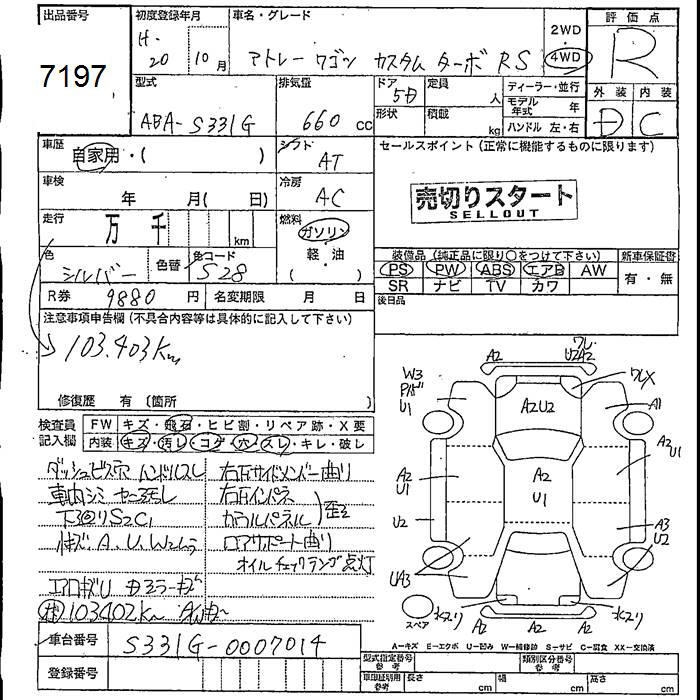 出品番号 初度登録年月 車名・グレード 評価点
7197 H-20 10月 アトレーワゴン カスタムターボRS 2WD 4WD R
型式 排気量 ドア 5D 定員 人 ディーラー・並行 外装 内装
ABA-S331G 660cc 形状 積載 kg モデル年式 年 ハンドル 左・右 D C
車歴 自家用・( ) シフト AT セールスポイント(正常に機能するものに限ります)
車検 年 月( 日) 冷房 AC 売切りスタート
SELLOUT
走行 万 千 km 燃料 ガソリン 軽・油 ( )
色 シルバー 色替 色コード S28 装備品(純正品に限り〇をつけて下さい) 新車保証書
PS PW ABS エアB AW 有・無
SR ナビ TV カワ
R券 9880円 名変期限 月 日 後日品
注意事項申告欄(不具合内容等は具体的に記入して下さい)
103.403Km
修復歴 有(箇所 )
検査員記入欄 FW キズ・飛石・ヒビ割・リペア跡・X要
内装 キズ・汚レ・コゲ・穴・スレ・キレ・破レ
ダッシュビス穴 ハンドルスレ 右Fサイドメンバー曲り
車内シミ 右Fインパネ
下回りS2C1 カウルパネル 歪
A.U.W2ムラ ロアサポート曲り
オイルチェックランプ点灯
エアロキズU
103402Km
車台番号 S331G-0007014
登録番号
W3 U1 A2 U2A2 A2U2 A1
A2 U1 A2 U1 A2 U1
U2 A3 U2
UA3 A2 A2 A2
スペア
A-キズ E-エクボ U-凹み W-補修跡 S-サビ C-腐食 XX-交換済
型式指定番号 参考 類別区分番号 参考
車庫証明用 参考 長さ cm 幅 cm 高さ cm